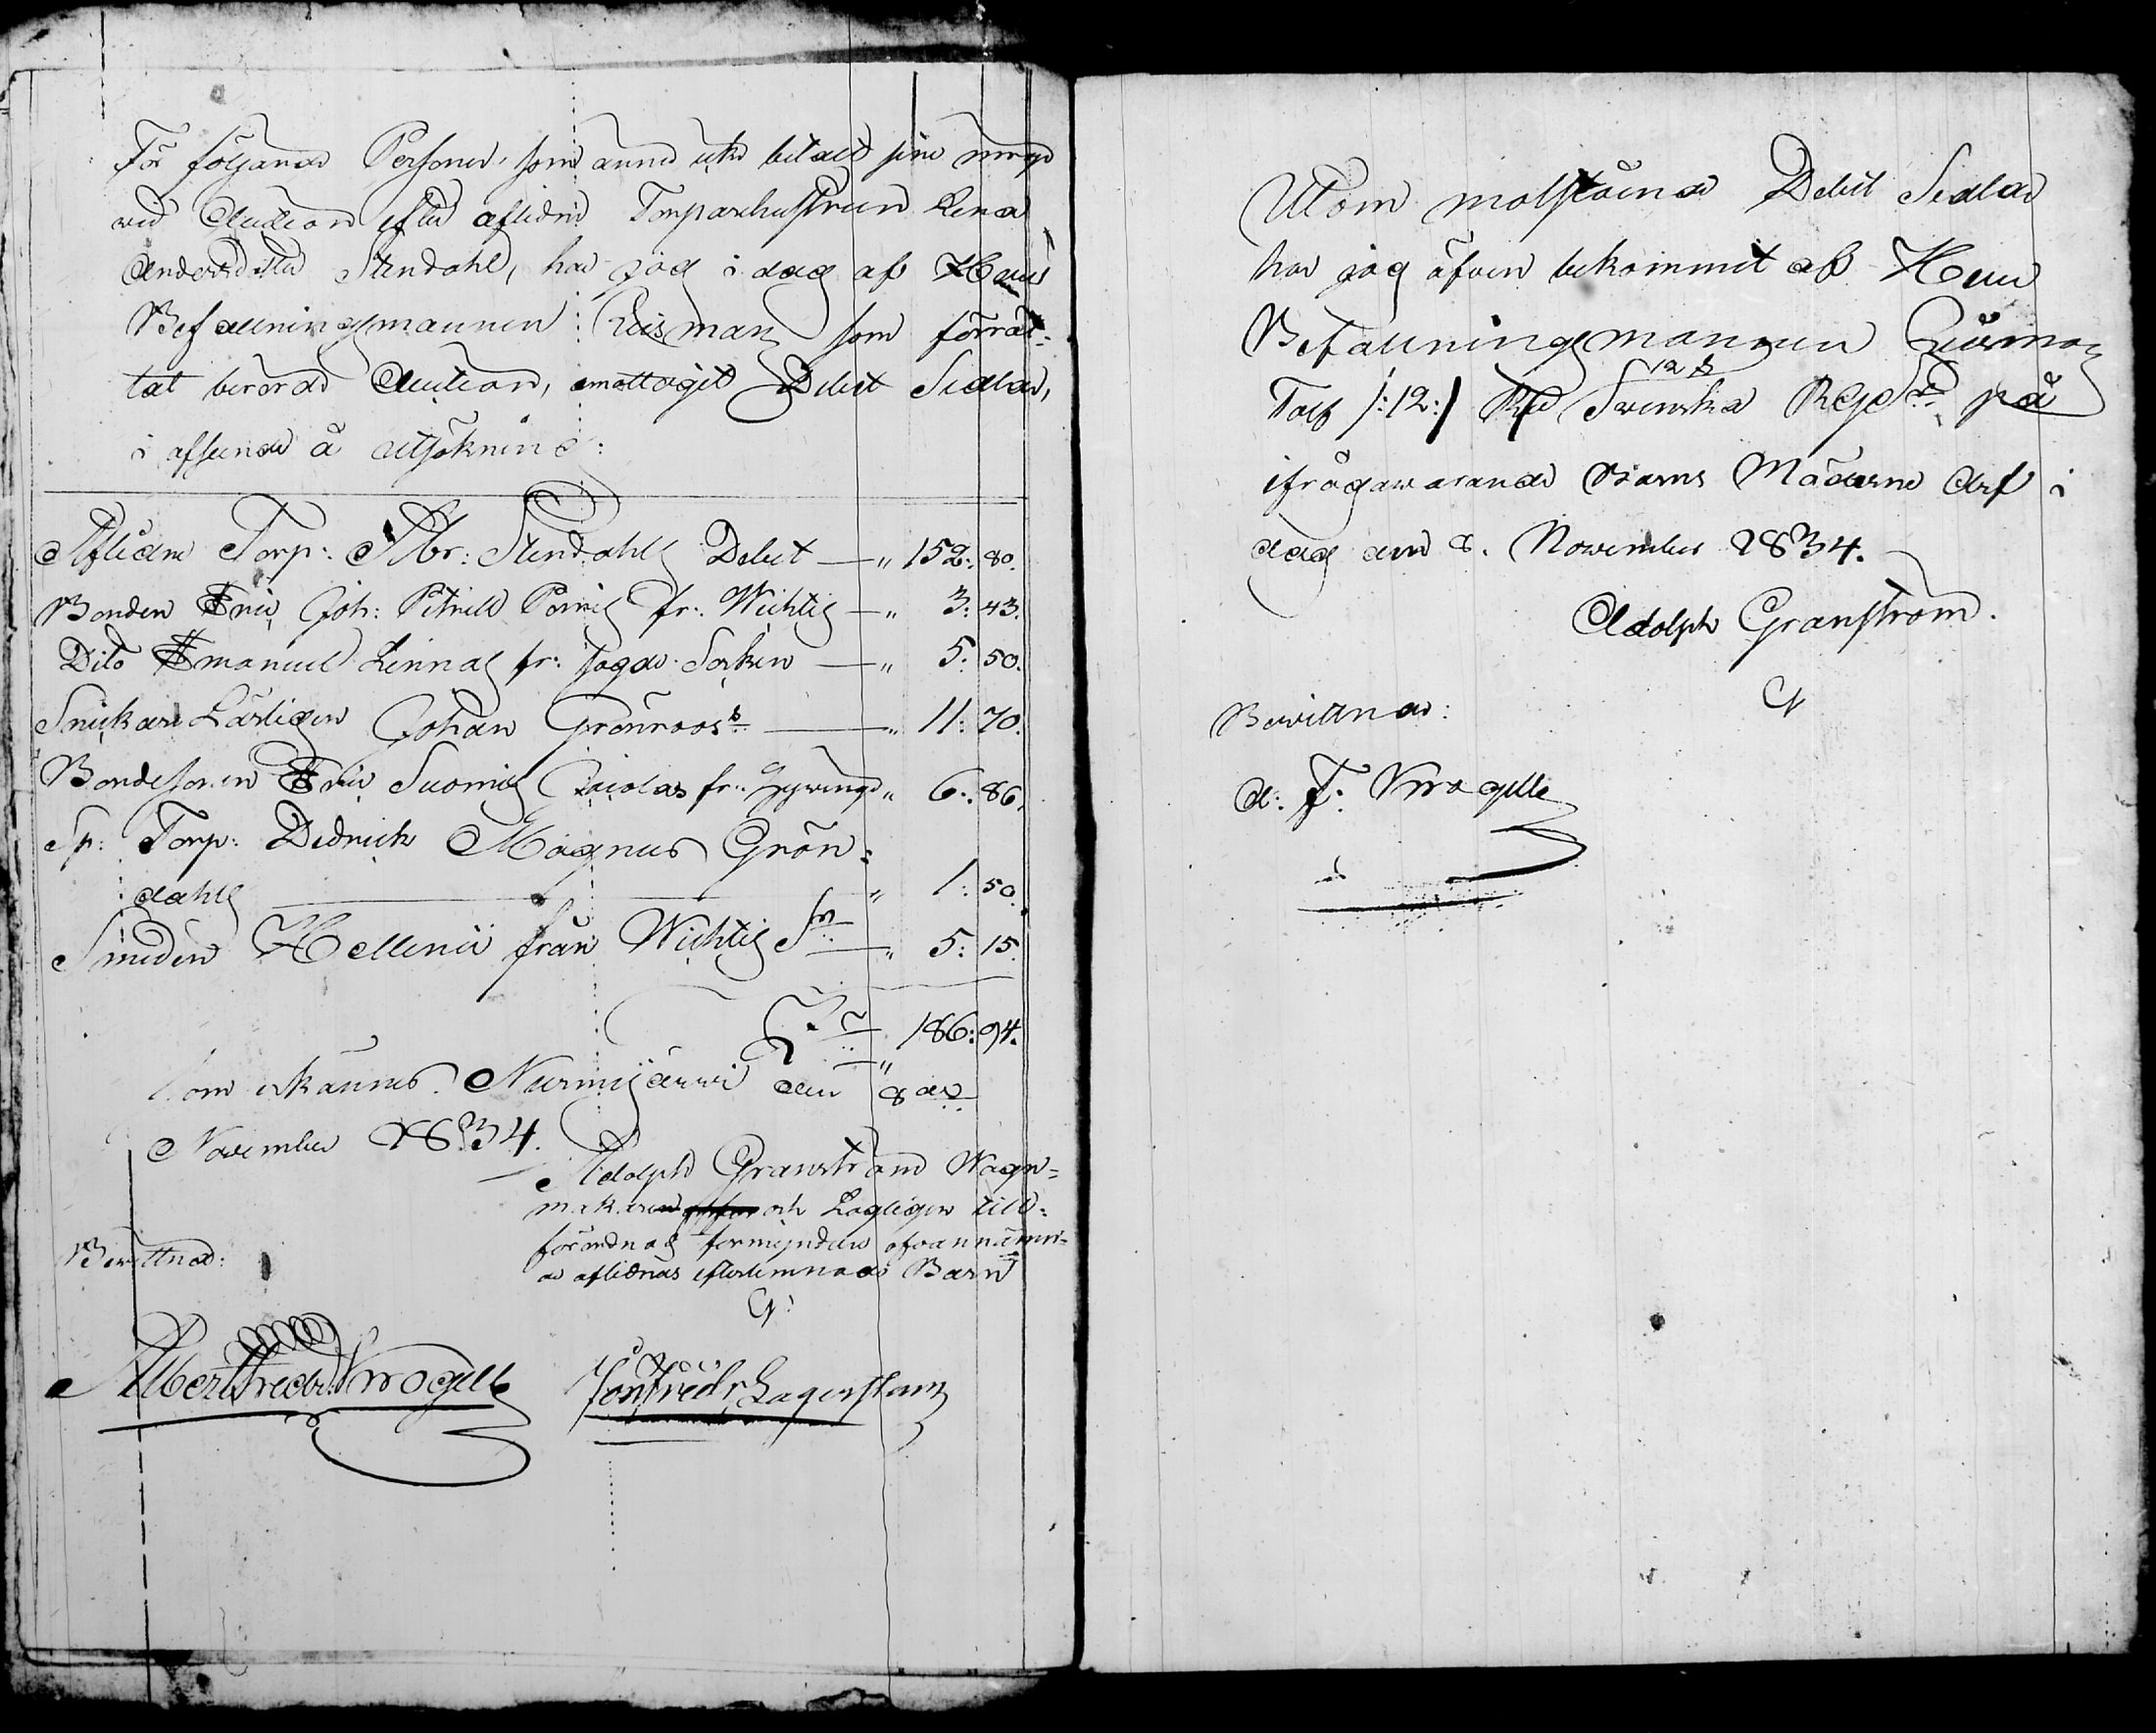 För följande Personer, som ännu icke betalt sine inrop
wid Auction efter aflidne Torparehustrun Lena
Andersdotter Stendahl, har jag i dag af Herr
Befallningsmannen Ruisman som förrät-
tat berörde Auction, emottagit Debet Sedlar,
i afseende å utsökning:
Aflidne Torp: Abr: Stendahls Debet — " 152: 80.
Bonden Eric Joh: Petrell fr: Wichtis — " 3: 43.
Dito Emanuel Linnas fr: Socken — " 5: 50.
Snickare Lärlingen Johan Grönroos — " 11: 70.
Bondesonen Eric Suomis fr: " 6: 86.
Sp: Torp: Didrich Magnus Grön-
dahls — " 1: 50.
Smeden Hellenii från Wichtis Sn — " 5: 15.
Sa " 186: 94.
Som erkännes. Nurmijärwi den 8de
November 1834.
Adolph Granström Wagn-
makaren och Lagligen till-
förordnad förmyndare ofvannämn-
de aflidnas efterlemnade Barn
Bewittna:
Albert Fredr: Krogell Jon Fredr Lagerstam
Utom motstående Debet Sedlar
har jag äfven bekommit af Herr
Befallningsmannen Ruisman
12 s
Tolf /:12:/ Rd Svenska Rgds på
ifrågawarande Barns Möderne Arf i
dag den 8. November 1834.
Adolph Granström.
Bewittnar:
A: F: Krogell